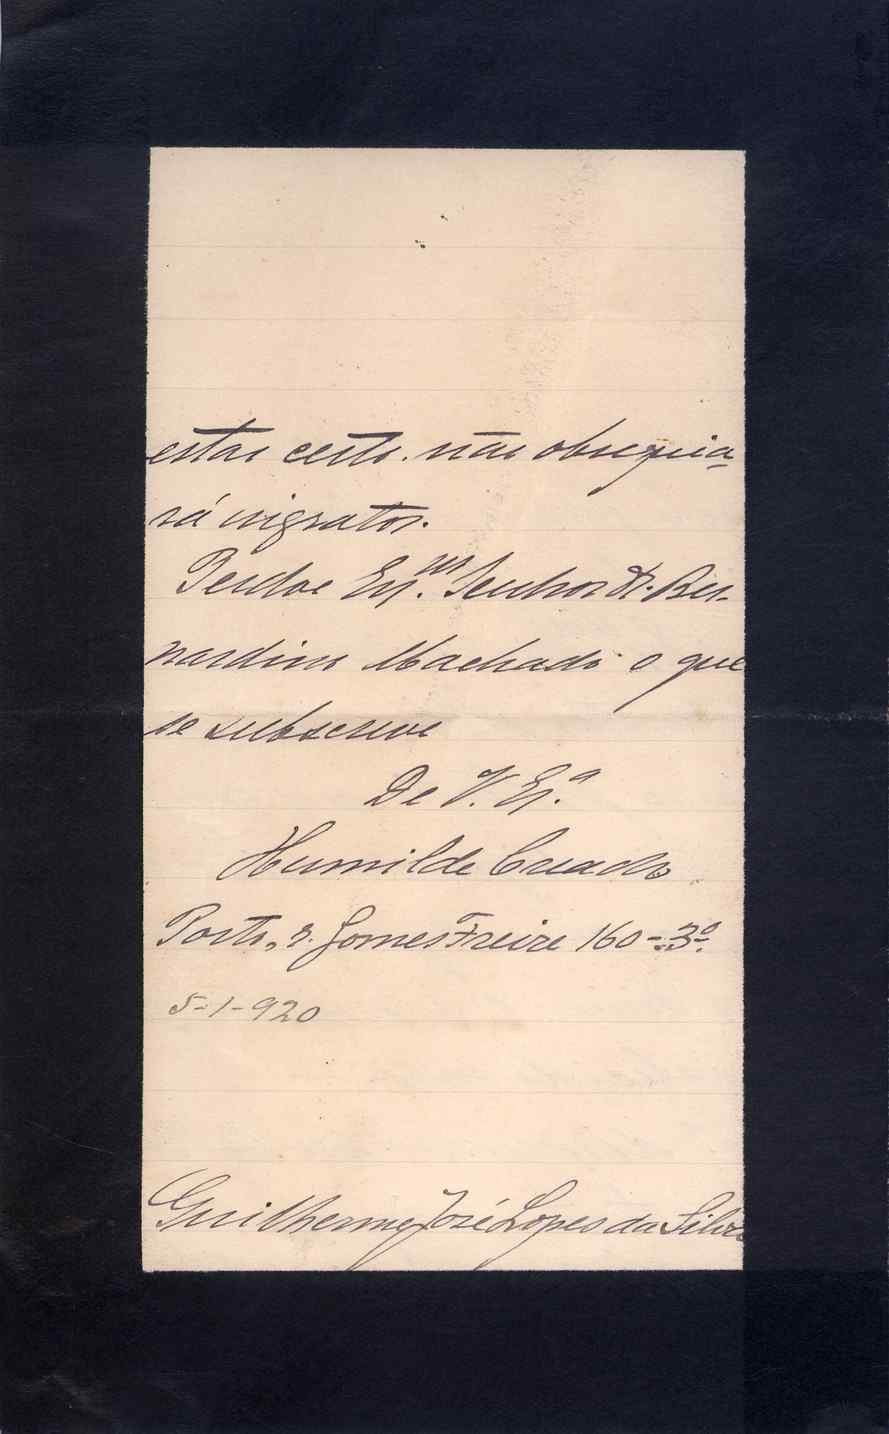 estar certo. não obsequia-
rá ingratos.
Perdoe Ex.mo Senhor Dr. Ber-
nardino Machado o que
se subscreve
De V. Ex.a
Humilde Creado
Porto, r. Gomes Freire 160-3º
5-1-920
Guilherme José Lopes da Silva